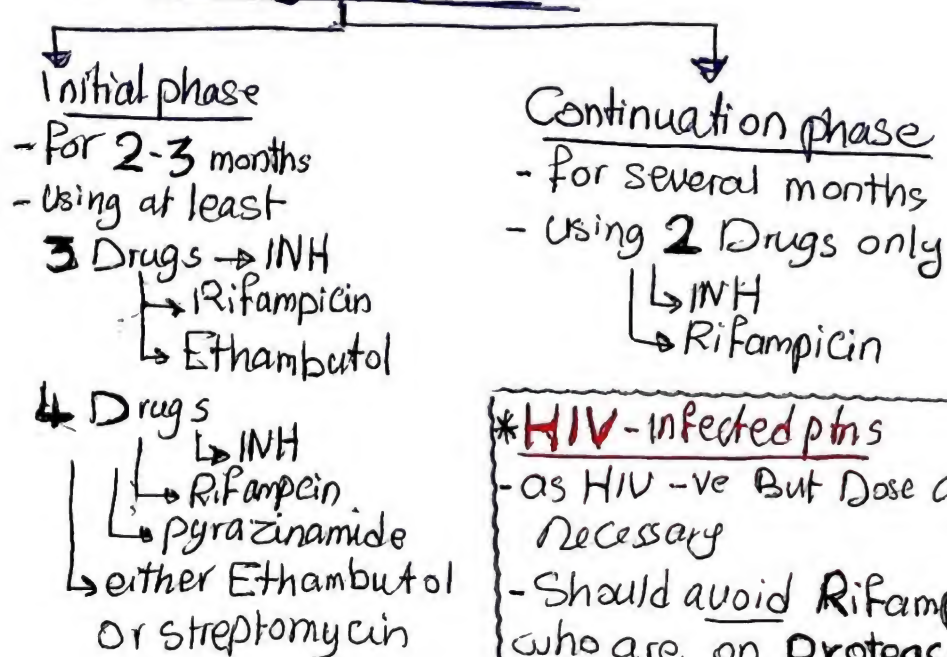 Initial phase
- For 2-3 months
- Using at least
3 Drugs → INH
→ Rifampicin
→ Ethambutol
4 Drugs
→ INH
→ Rifampcin
→ pyrazinamide
→ either Ethambutol
or streptomycin
Continuation phase
- for several months
- using 2 Drugs only
→ INH
→ Rifampicin
* HIV-infected ptns
- as HIV -ve But Dose
Necessary
- Should avoid
who are on